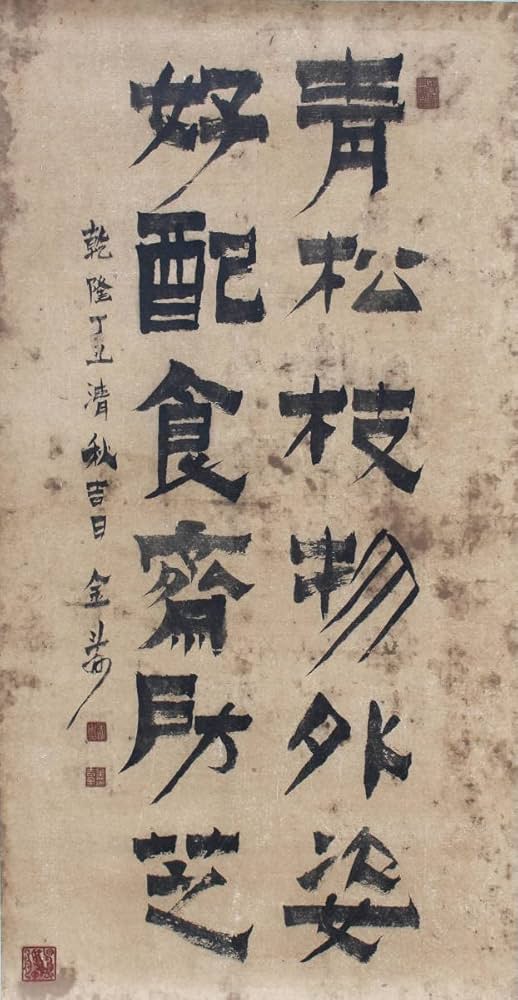 青松枝物外姿
好配食齋房芝
乾隆丁丑清秋吉日 金